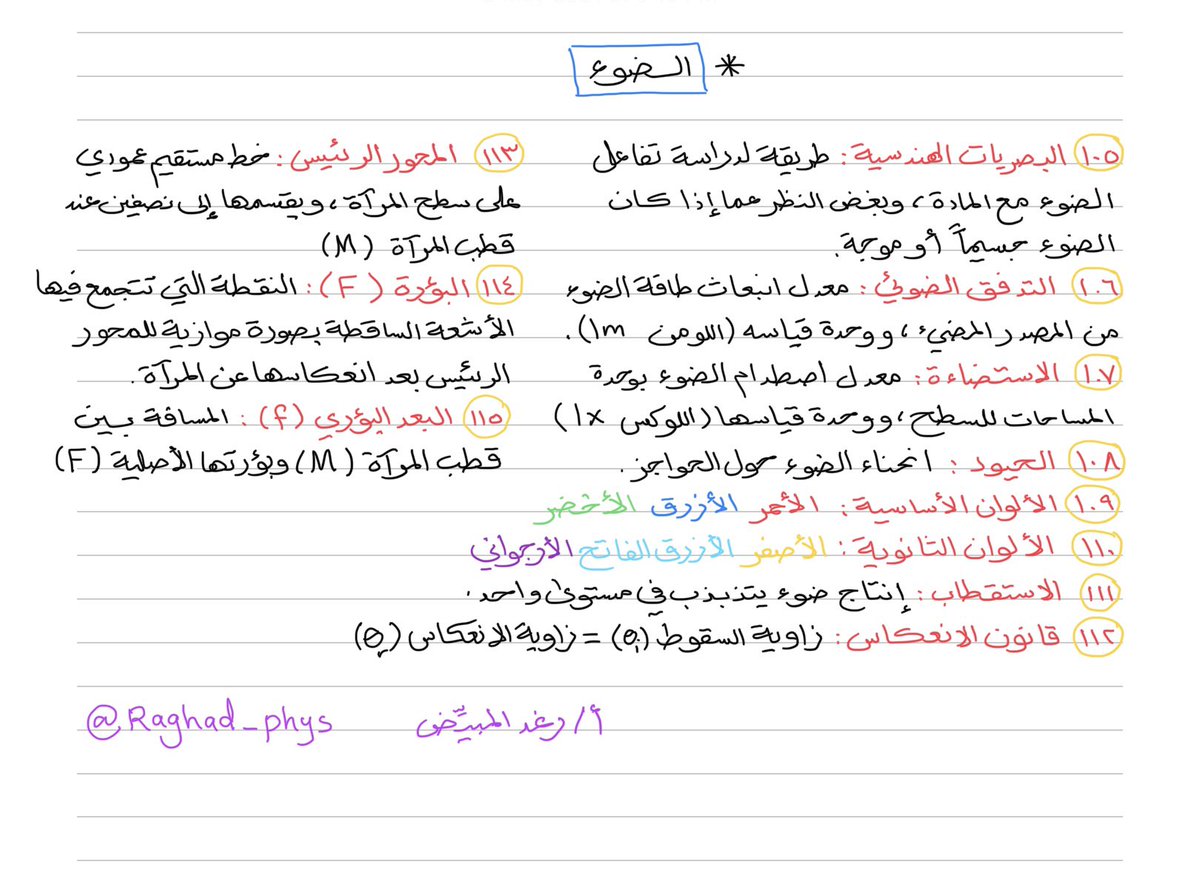 * الضوء
١٠٥ البصريات الهندسية: طريقة لدراسة تفاعل
الضوء مع المادة، وبغض النظر عما إذا كان
الضوء جسيماً أو موجة.
١٠٦ التدفق الضوئي: معدل انبعاث طاقة الضوء
من المصدر المضيء، ووحدة قياسه (اللومن lm).
١٠٧ الاستضاءة: معدل اصطدام الضوء بوحدة
المساحات للسطح، ووحدة قياسها (اللوكس lx)
١٠٨ الحيود: انحناء الضوء حول الحواجز.
١٠٩ الألوان الأساسية: الأحمر الأزرق الأخضر
١١٠ الألوان الثانوية: الأصفر الأزرق الفاتح الأرجواني
١١١ الاستقطاب: إنتاج ضوء يتذبذب في مستوى واحد.
١١٢ قانون الانعكاس: زاوية السقوط (θi) = زاوية الانعكاس (θr)
١١٣ المحور الرئيس: خط مستقيم عمودي
على سطح المرآة، ويقسمها إلى نصفين عند
قطب المرآة (M)
١١٤ البؤرة (F): النقطة التي تتجمع فيها
الأشعة الساقطة بصورة موازية للمحور
الرئيس بعد انعكاسها عن المرآة.
١١٥ البعد البؤري (f): المسافة بين
قطب المرآة (M) وبؤرتها الأصلية (F)
أ/ رغد المبيّض @Raghad_phys